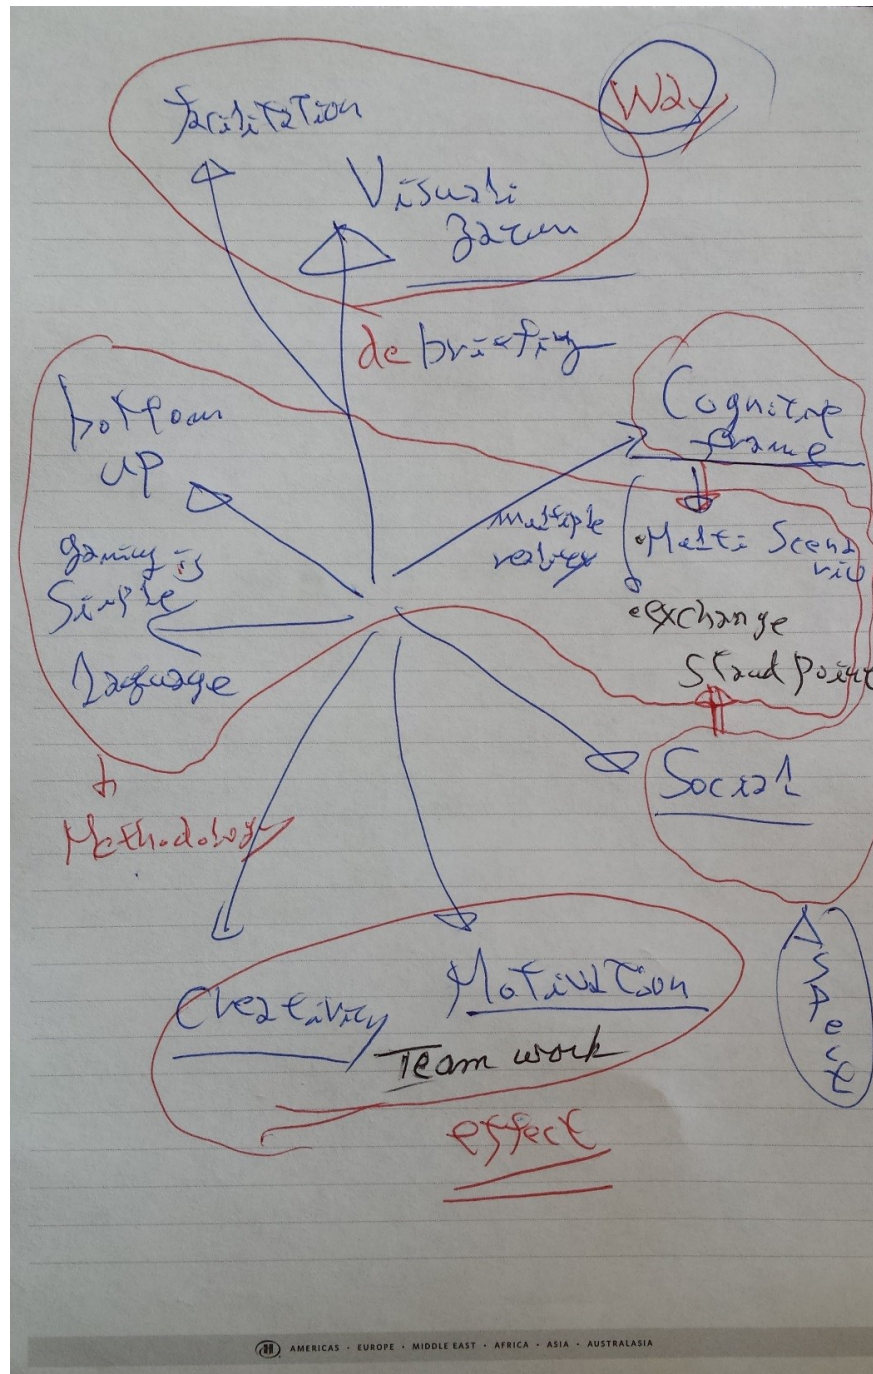 Way
facilitation
Visuali
zation
debriefing
Cognitive
frame
bottom
up
multiple
reality
Multi Scena
rio
gaming is
Simple
Language
exchange
Stand Point
Social
Methodology
Aspect
Creativity
Motivation
Team work
effect
AMERICAS · EUROPE · MIDDLE EAST · AFRICA · ASIA · AUSTRALASIA